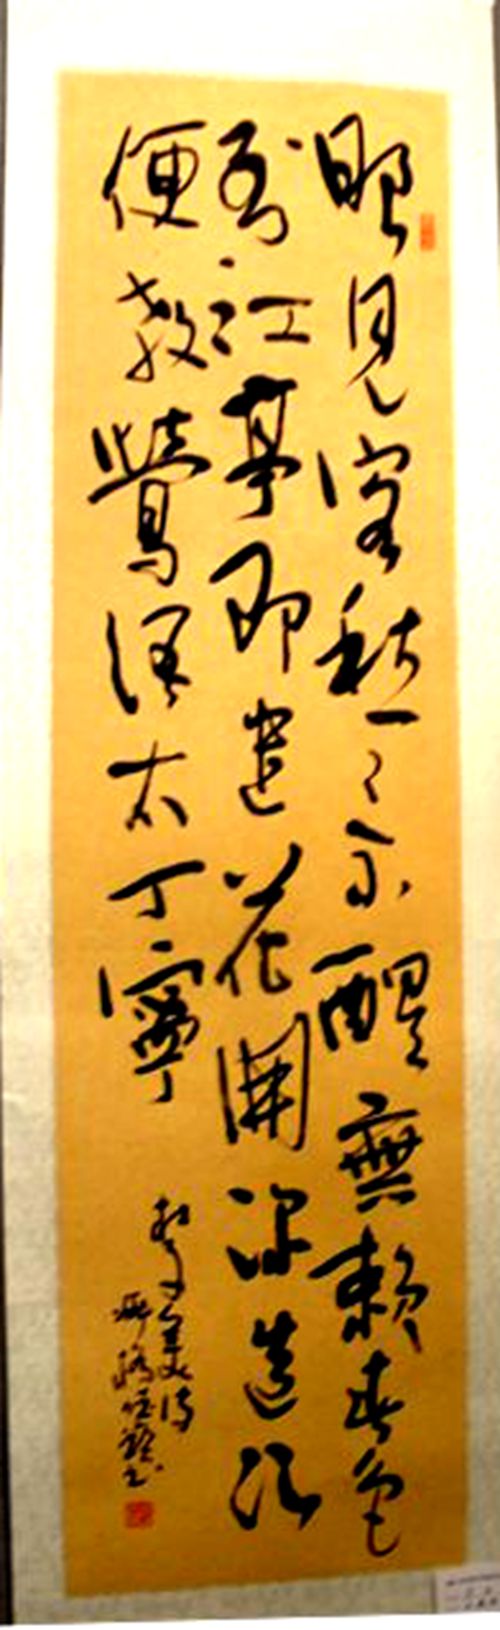 眼見客愁々不醒無賴春色
到江亭即遣花開深造次
便教鶯語太丁寧